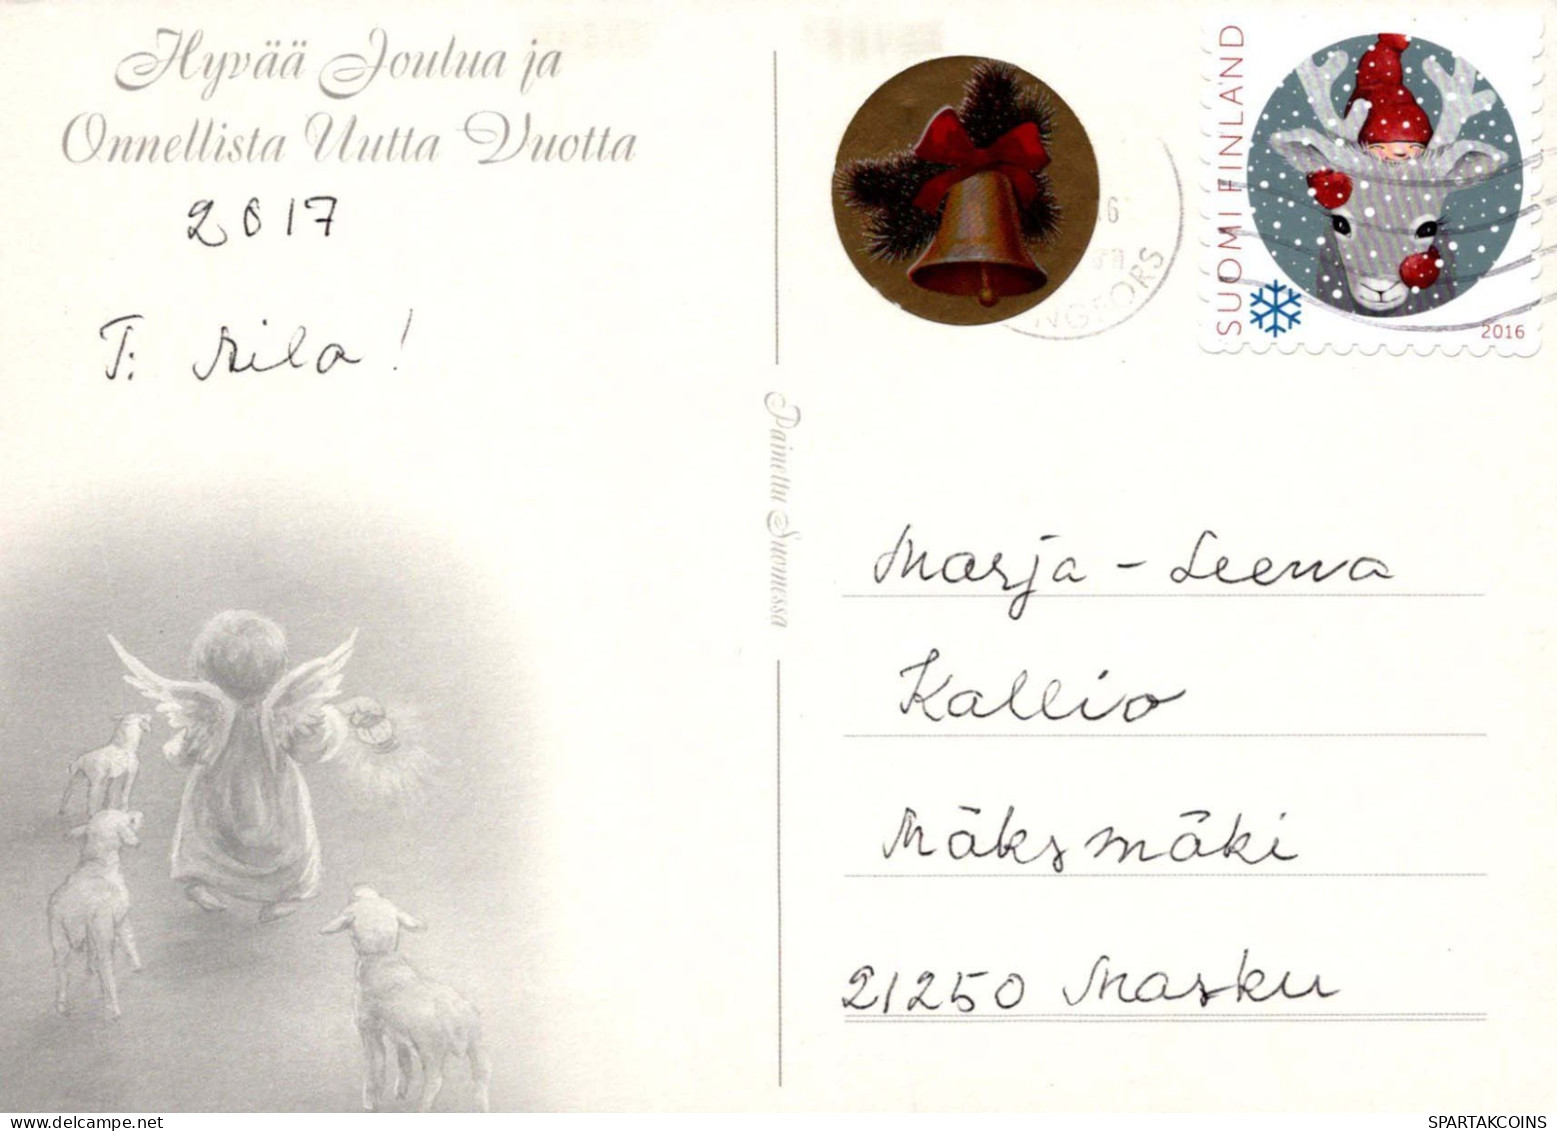 Hyvää Joulua ja
Onnellista Uutta Vuotta
2017
T: Aila!
Painettu Suomessa
16
NGFORS
SUOMI FINLAND
2016
Marja-Leena
Kallio
Mäksmäki
21250 Masku
SPARTAKCOINS